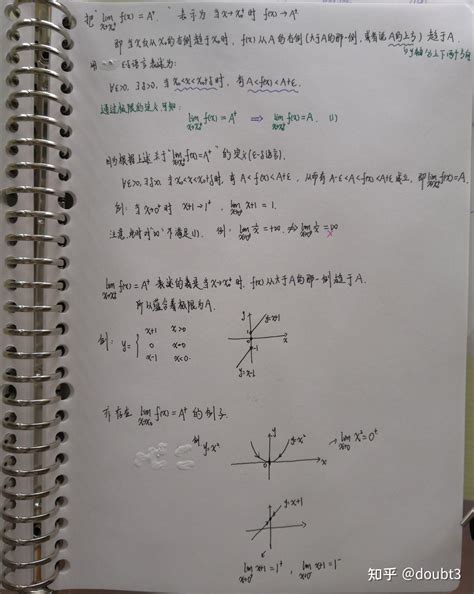 把"lim x→x₀⁺ f(x) = A⁺" 表示为 当x→x₀⁺ 时 f(x)→A⁺
即 当x从x₀的右侧趋于x₀时, f(x)从A的右侧(大于A的那一侧, 或者说A的上方) 趋于A.
用 ε-δ语言表述为:
∀ε>0, ∃δ>0, 当 x₀<x<x₀+δ 时, 有 A<f(x)<A+ε.
通过极限的定义可知:
lim x→x₀⁺ f(x) = A⁺ ⟹ lim x→x₀⁺ f(x) = A. (1)
根据上述关于"lim x→x₀⁺ f(x)=A⁺"的定义(ε-δ语言).
∀ε>0, ∃δ>0, 当 x₀<x<x₀+δ时, 有 A<f(x)<A+ε, 从而有 A-ε<A<f(x)<A+ε 成立, 即 lim x→x₀⁺ f(x)=A.
例: 当x→0⁺ 时 x+1→1⁺, lim x→0⁺ x+1 = 1.
注意, 此时"∞"不满足(1). 例: lim x→0⁺ 1/x = +∞ ⇏ lim x→0 1/x = ∞
lim x→x₀⁺ f(x) = A⁺ 表述的是当x→x₀⁺ 时, f(x)从大于A的那一侧趋于A.
所以蕴含着极限为A.
例: y= { x+1 x>0
0 x=0
x-1 x<0.
y
y=x+1
x
-1
y=x-1
存在 lim x→x₀ f(x)=A⁺ 的例子.
例. y=x²
y
y=x²
0
x
→ lim x→0 x² = 0⁺
y=x+1
lim x→0⁺ x+1 = 1⁺, lim x→0⁻ x+1 = 1⁻
知乎 @doubt3